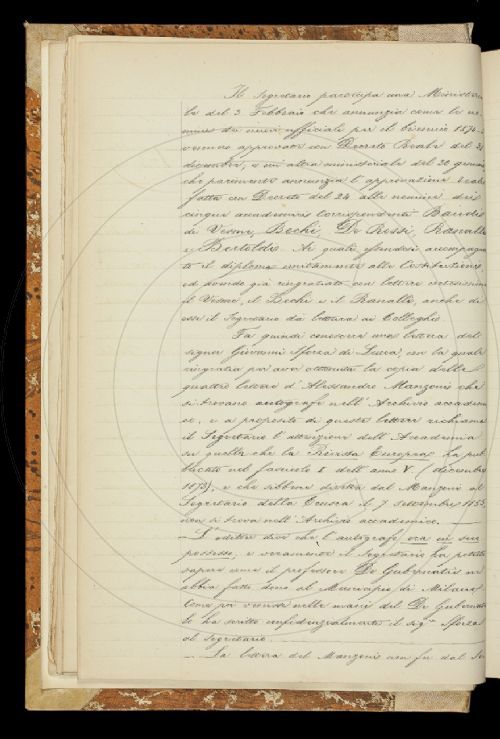 Il Segretario partecipa una Ministeria
le del 3 Febbraio che annunzia come le no
mine dei nuovi ufficiali per il biennio 1874-
vennero approvate con Decreto Reale del 31
decembre, e un'altra ministeriale del 30 gennaio
che parimente annunzia l'approvazione Reale
fatta con Decreto del 24 alle nomine dei
cinque accademici Corrispondenti Baudi
di Vesme, Bechi, De Rossi, Ranalli
e Bertoldi. Ai quali essendosi accompagna
to il diploma unitamente alle Costituzioni
ed avendo già ringraziato con lettere
il Vesme, il Bechi e il Ranalli, anche di
esse il Segretario dà lettura ai Colleghi.
Fa quindi conoscere una lettera del
signor Giovanni Sforza di Lucca, con la quale
ringrazia per aver ottenuta la copia delle
quattro lettere d'Alessandro Manzoni che
si trovano autografe nell'Archivio accademi
co, e a proposito di questa lettera richiama
il Segretario l'attenzione dell'Accademia
su quella che la Rivista Europea ha pub
blicato nel fascicolo I dell'anno V. (decembre
1873), e che sebbene diretta dal Manzoni al
Segretario della Crusca il 7 settembre 1855,
non si trova nell'Archivio accademico. —
— L'editore dice che l'autografo ora in suo
possesso, e veramente il Segretario ha potuto
sapere come il professore De Gubernatis ne
abbia fatto dono al Municipio di Milano
come poi venisse nelle mani del De Gubernatis
lo ha scritto confidenzialmente il sig.r Sforza
al Segretario. —
— La lettera del Manzoni non fu dal Se